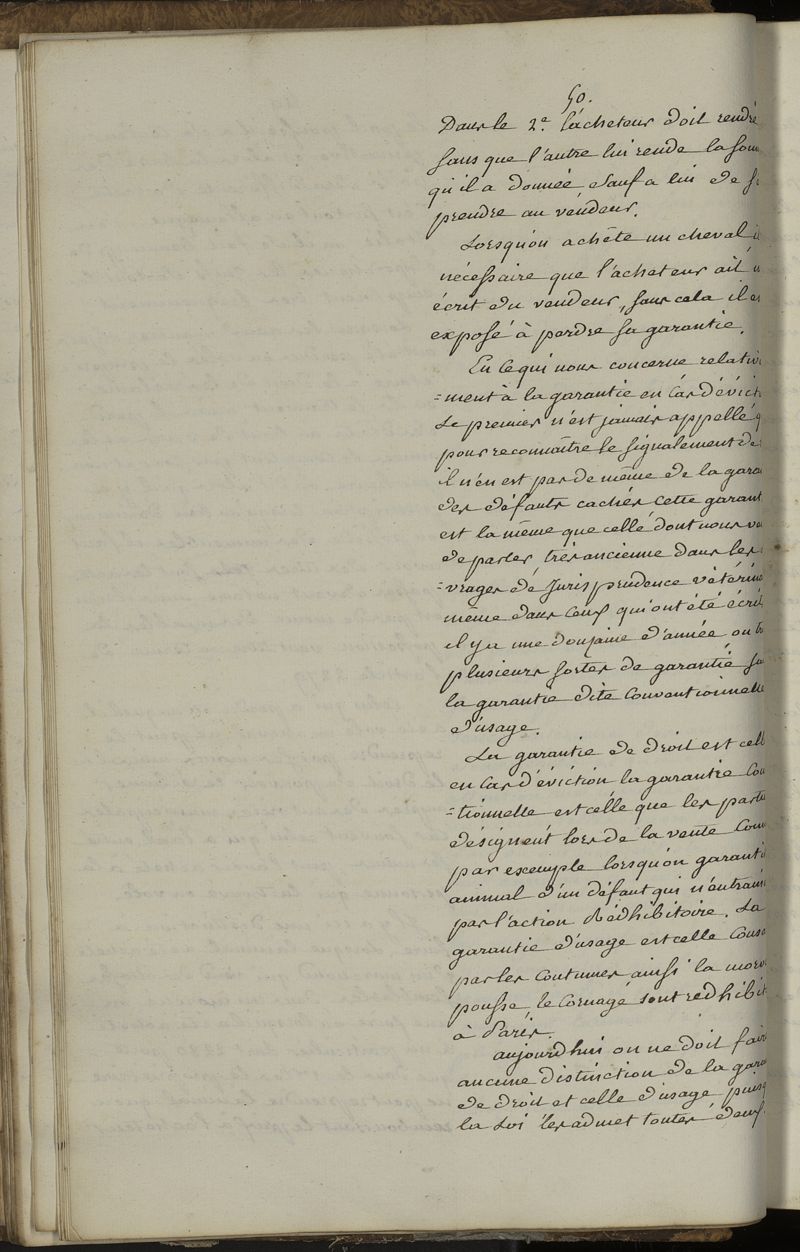 50.
Dans le 2e. l'acheteur doit rendre
sans que l'autre lui rende la som
qu'il a donnée, sauf a lui de s
prendre au vendeur.
Lorsqu'on achète un cheval i
nécessaire que l'acheteur ait u
écrit du vendeur, sans cela il es
exposé à perdre sa garantie.
En ce qui nous concerne relativ
=ment à la garantie en cas d'évict
Le premier n'est jamais appellé q
pour reconnaître le signalement de
il n'en est pas de même de la gara
des défauts cachés cette garant
est la même que celle dont nous ve
de parler, très ancienne dans les
=vrages de Jurisprudence vétérin
même dans ceux qui ont été écri
il y a une douzaine d'année, on tr
plusieurs sortes de garantie sa
la garantie dite Conventionnelle
d'usage.
La garantie de droit est cell
en cas d'éviction la garantie Con
=tionnelle est celle que les parti
désignent lors de la vente Com
par exemple lorsqu'on garanti
animal d'un défaut qui n'entrain
pas l'action Rédhibitoire. La
garantie d'usage est celle Consa
par les Coutumes ainsi la morv
pousse, le Cornage sont redhibit
à Paris.
aujourd'hui on ne doit fair
aucune distinction de la gara
de droit et celle d'usage puisq
la Loi les admet toutes deux.